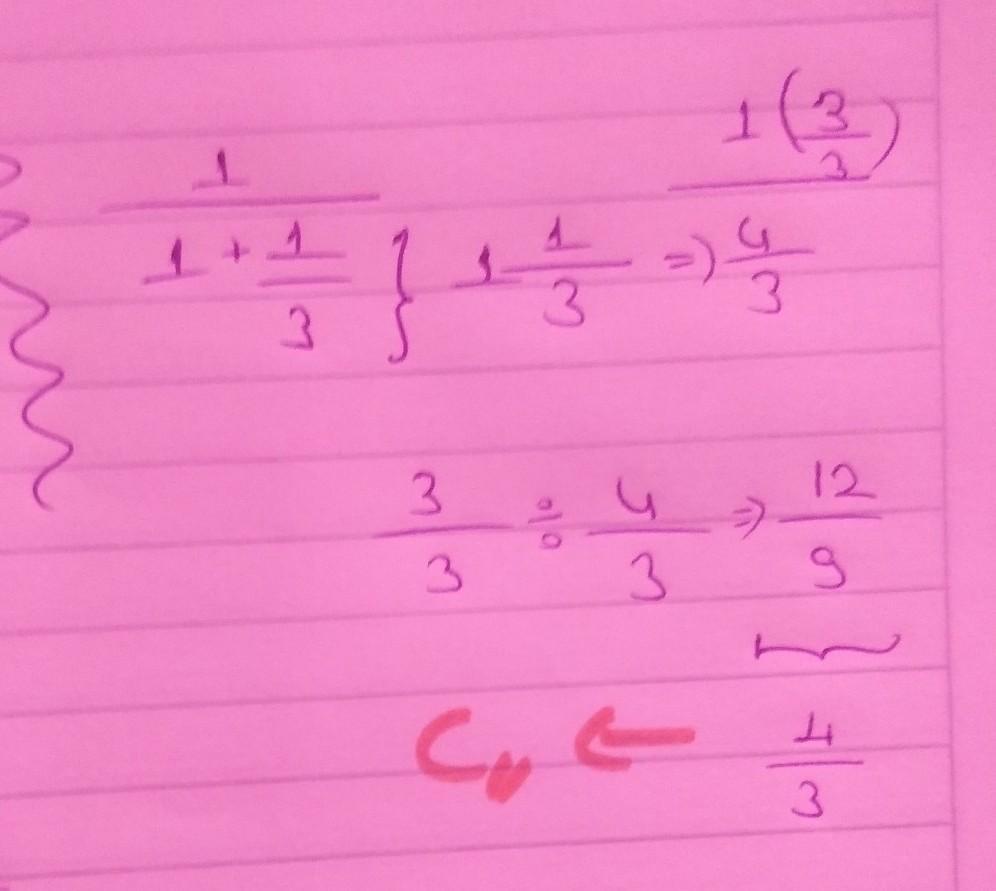 1/(1 + 1/3) } 1 1/3 ⇒ 1(3/3)/(4/3)
3/3 ÷ 4/3 ⇒ 12/9
C,, ← 4/3